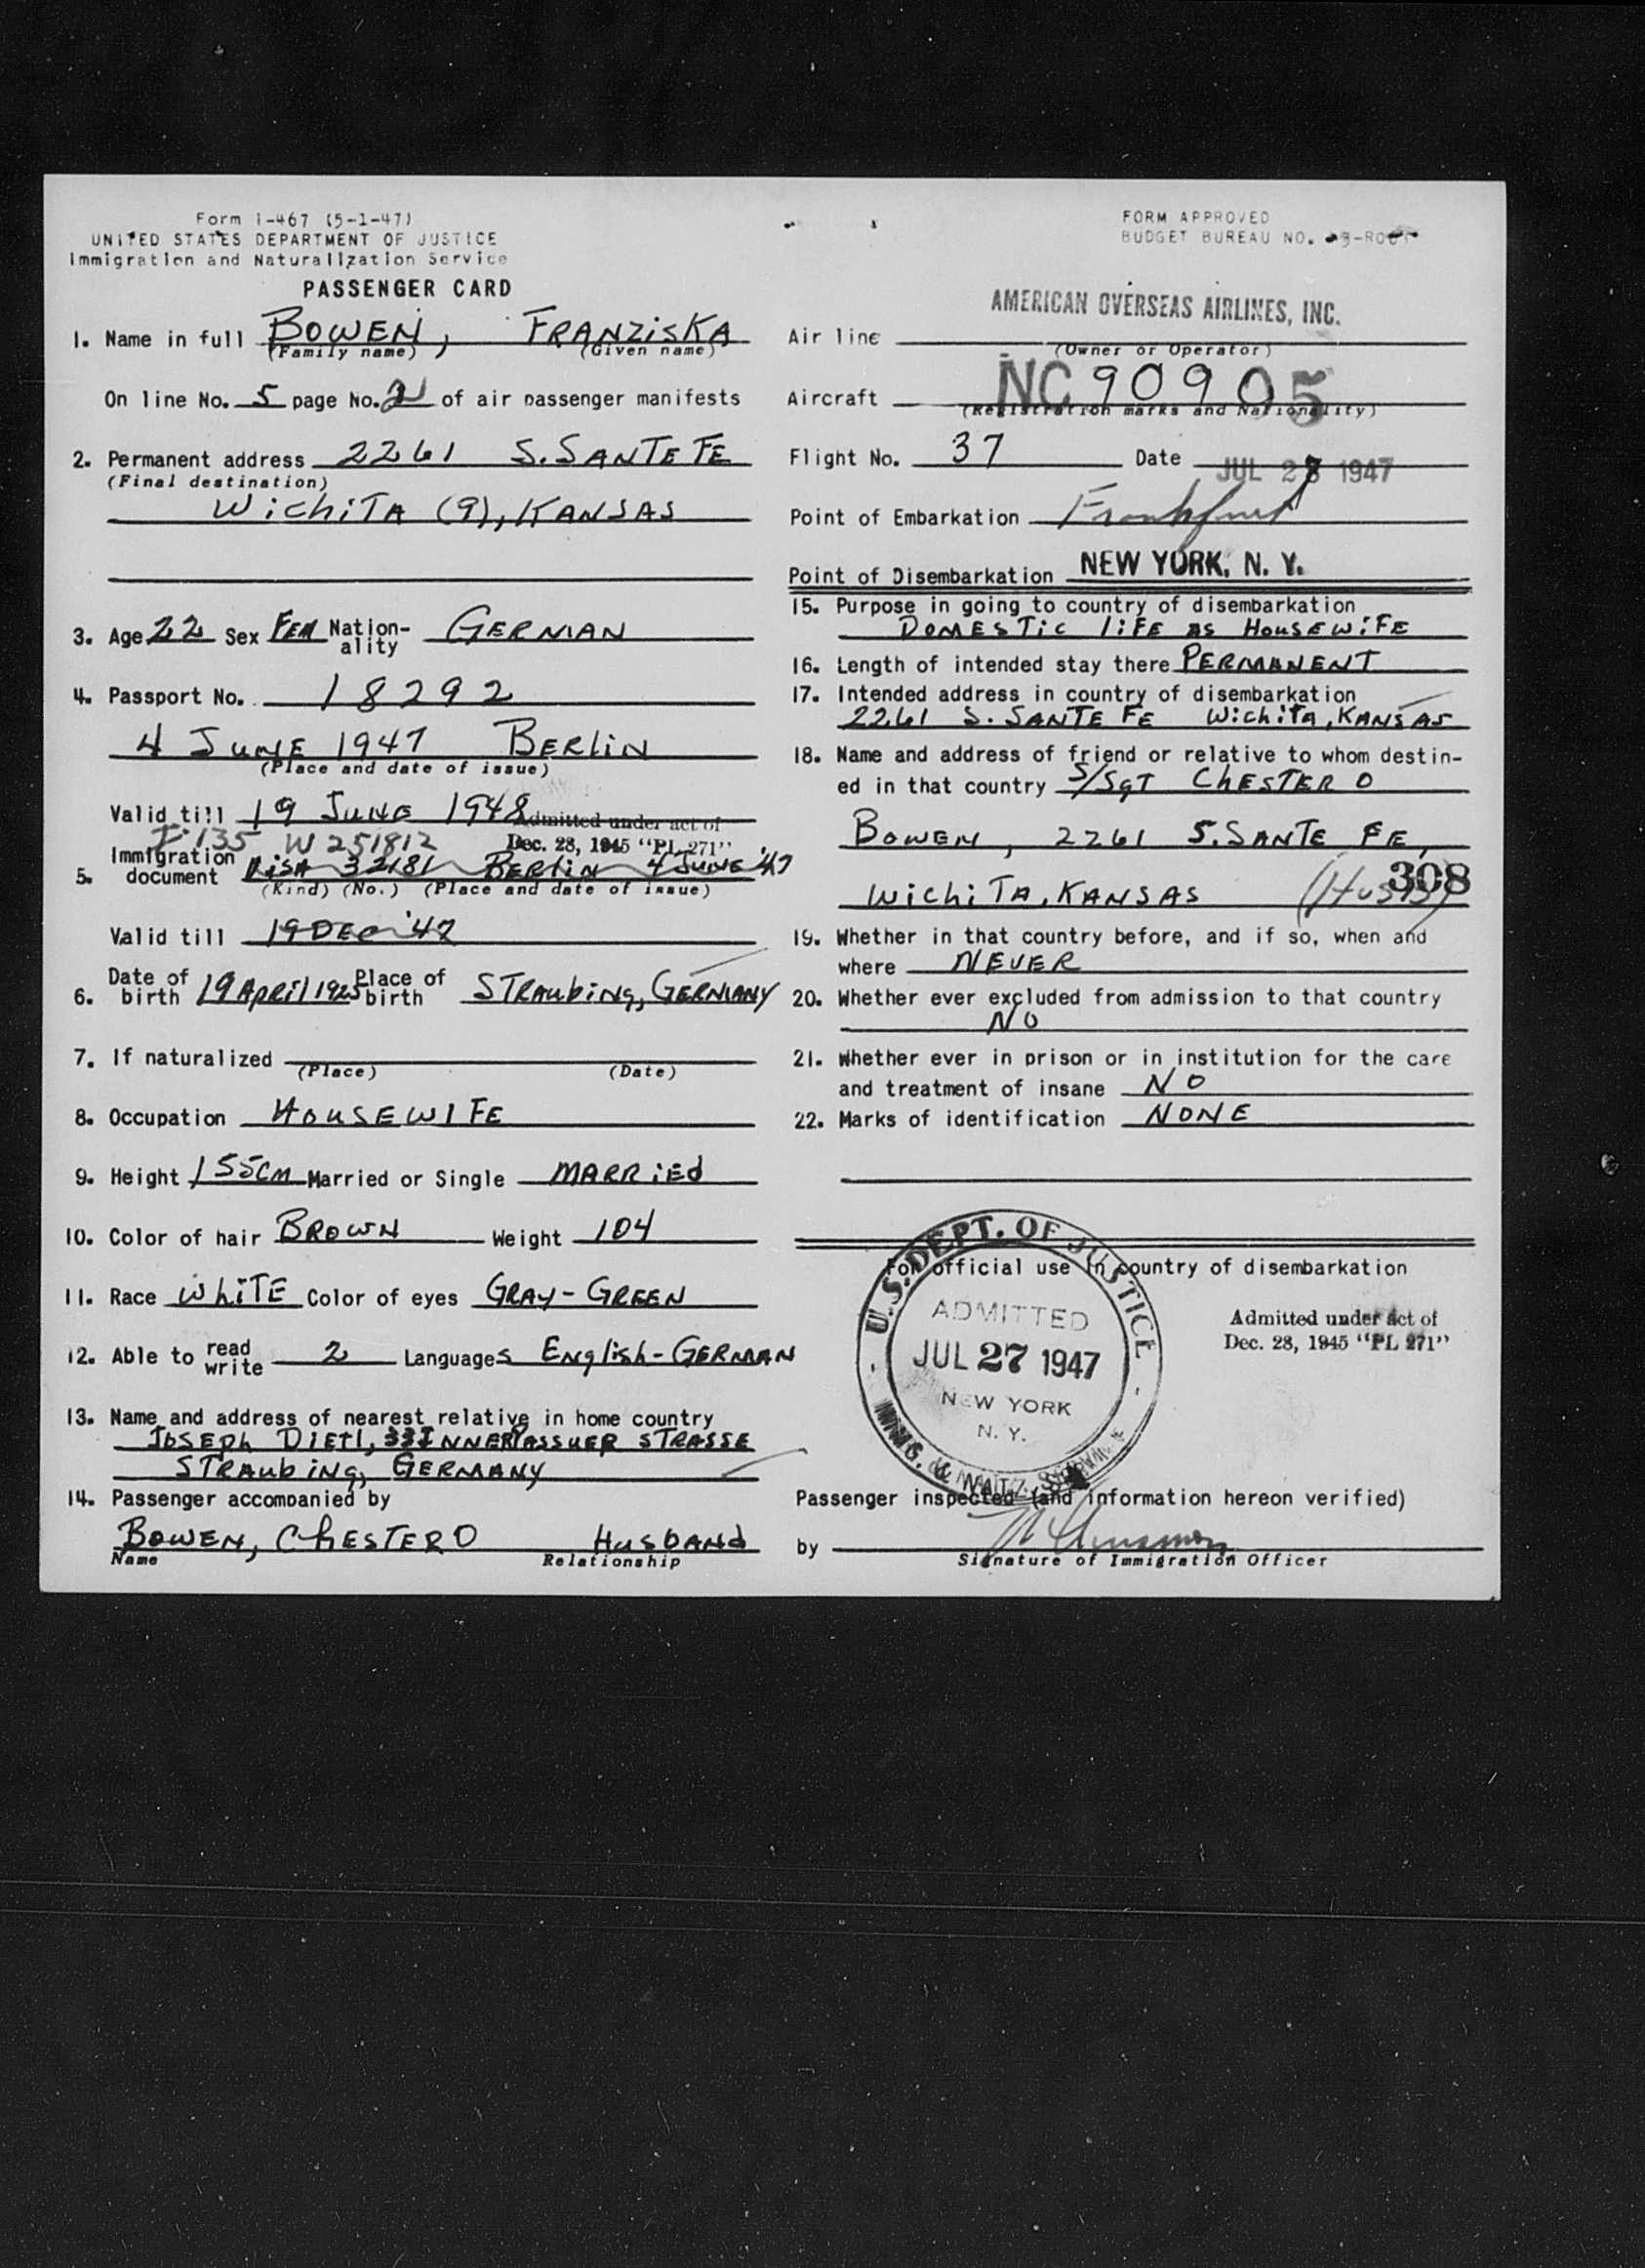 Form I-467 (5-1-47)
UNITED STATES DEPARTMENT OF JUSTICE
Immigration and Naturalization Service
PASSENGER CARD
1. Name in full BOWEN, FRANZISKA
(Family name) (Given name)
On line No. 5 page No. 2 of air passenger manifests
2. Permanent address 2261 S. SANTE FE
(Final destination)
WICHITA (9), KANSAS
3. Age 22 Sex FEM Nation-ality GERMAN
4. Passport No. 18292
4 JUNE 1947 BERLIN
(Place and date of issue)
Valid till 19 JUNE 1948
Admitted under act of
Dec. 28, 1945 "PL 271"
I-135 W 251812
5. Immigration document VISA 32181 BERLIN 4 JUNE '47
(Kind) (No.) (Place and date of issue)
Valid till 19 DEC '47
6. Date of birth 19 APRIL 1925 Place of birth STRAUBING, GERMANY
7. If naturalized
(Place) (Date)
8. Occupation HOUSEWIFE
9. Height 155CM Married or Single MARRIED
10. Color of hair BROWN Weight 104
11. Race WHITE Color of eyes GRAY-GREEN
12. Able to read write 2 Languages ENGLISH-GERMAN
13. Name and address of nearest relative in home country
JOSEPH DIETL, 33 INNERPASSUER STRASSE
STRAUBING, GERMANY
14. Passenger accompanied by
BOWEN, CHESTER O HUSBAND
Name Relationship
FORM APPROVED
BUDGET BUREAU NO.
AMERICAN OVERSEAS AIRLINES, INC.
Air line
(Owner or Operator)
Aircraft NC 90905
(Registration marks and Nationality)
Flight No. 37 Date JUL 27 1947
Point of Embarkation Frankfurt
Point of Disembarkation NEW YORK, N. Y.
15. Purpose in going to country of disembarkation
DOMESTIC LIFE AS HOUSEWIFE
16. Length of intended stay there PERMANENT
17. Intended address in country of disembarkation
2261 S. SANTE FE WICHITA, KANSAS
18. Name and address of friend or relative to whom destin-
ed in that country S/SGT CHESTER O
BOWEN, 2261 S. SANTE FE,
308
WICHITA, KANSAS (HUSB)
19. Whether in that country before, and if so, when and
where NEVER
20. Whether ever excluded from admission to that country
NO
21. Whether ever in prison or in institution for the care
and treatment of insane NO
22. Marks of identification NONE
For official use in country of disembarkation
U.S. DEPT. OF JUSTICE
ADMITTED
JUL 27 1947
NEW YORK
N. Y.
Admitted under act of
Dec. 28, 1945 "PL 271"
Passenger inspected (and information hereon verified)
by
Signature of Immigration Officer